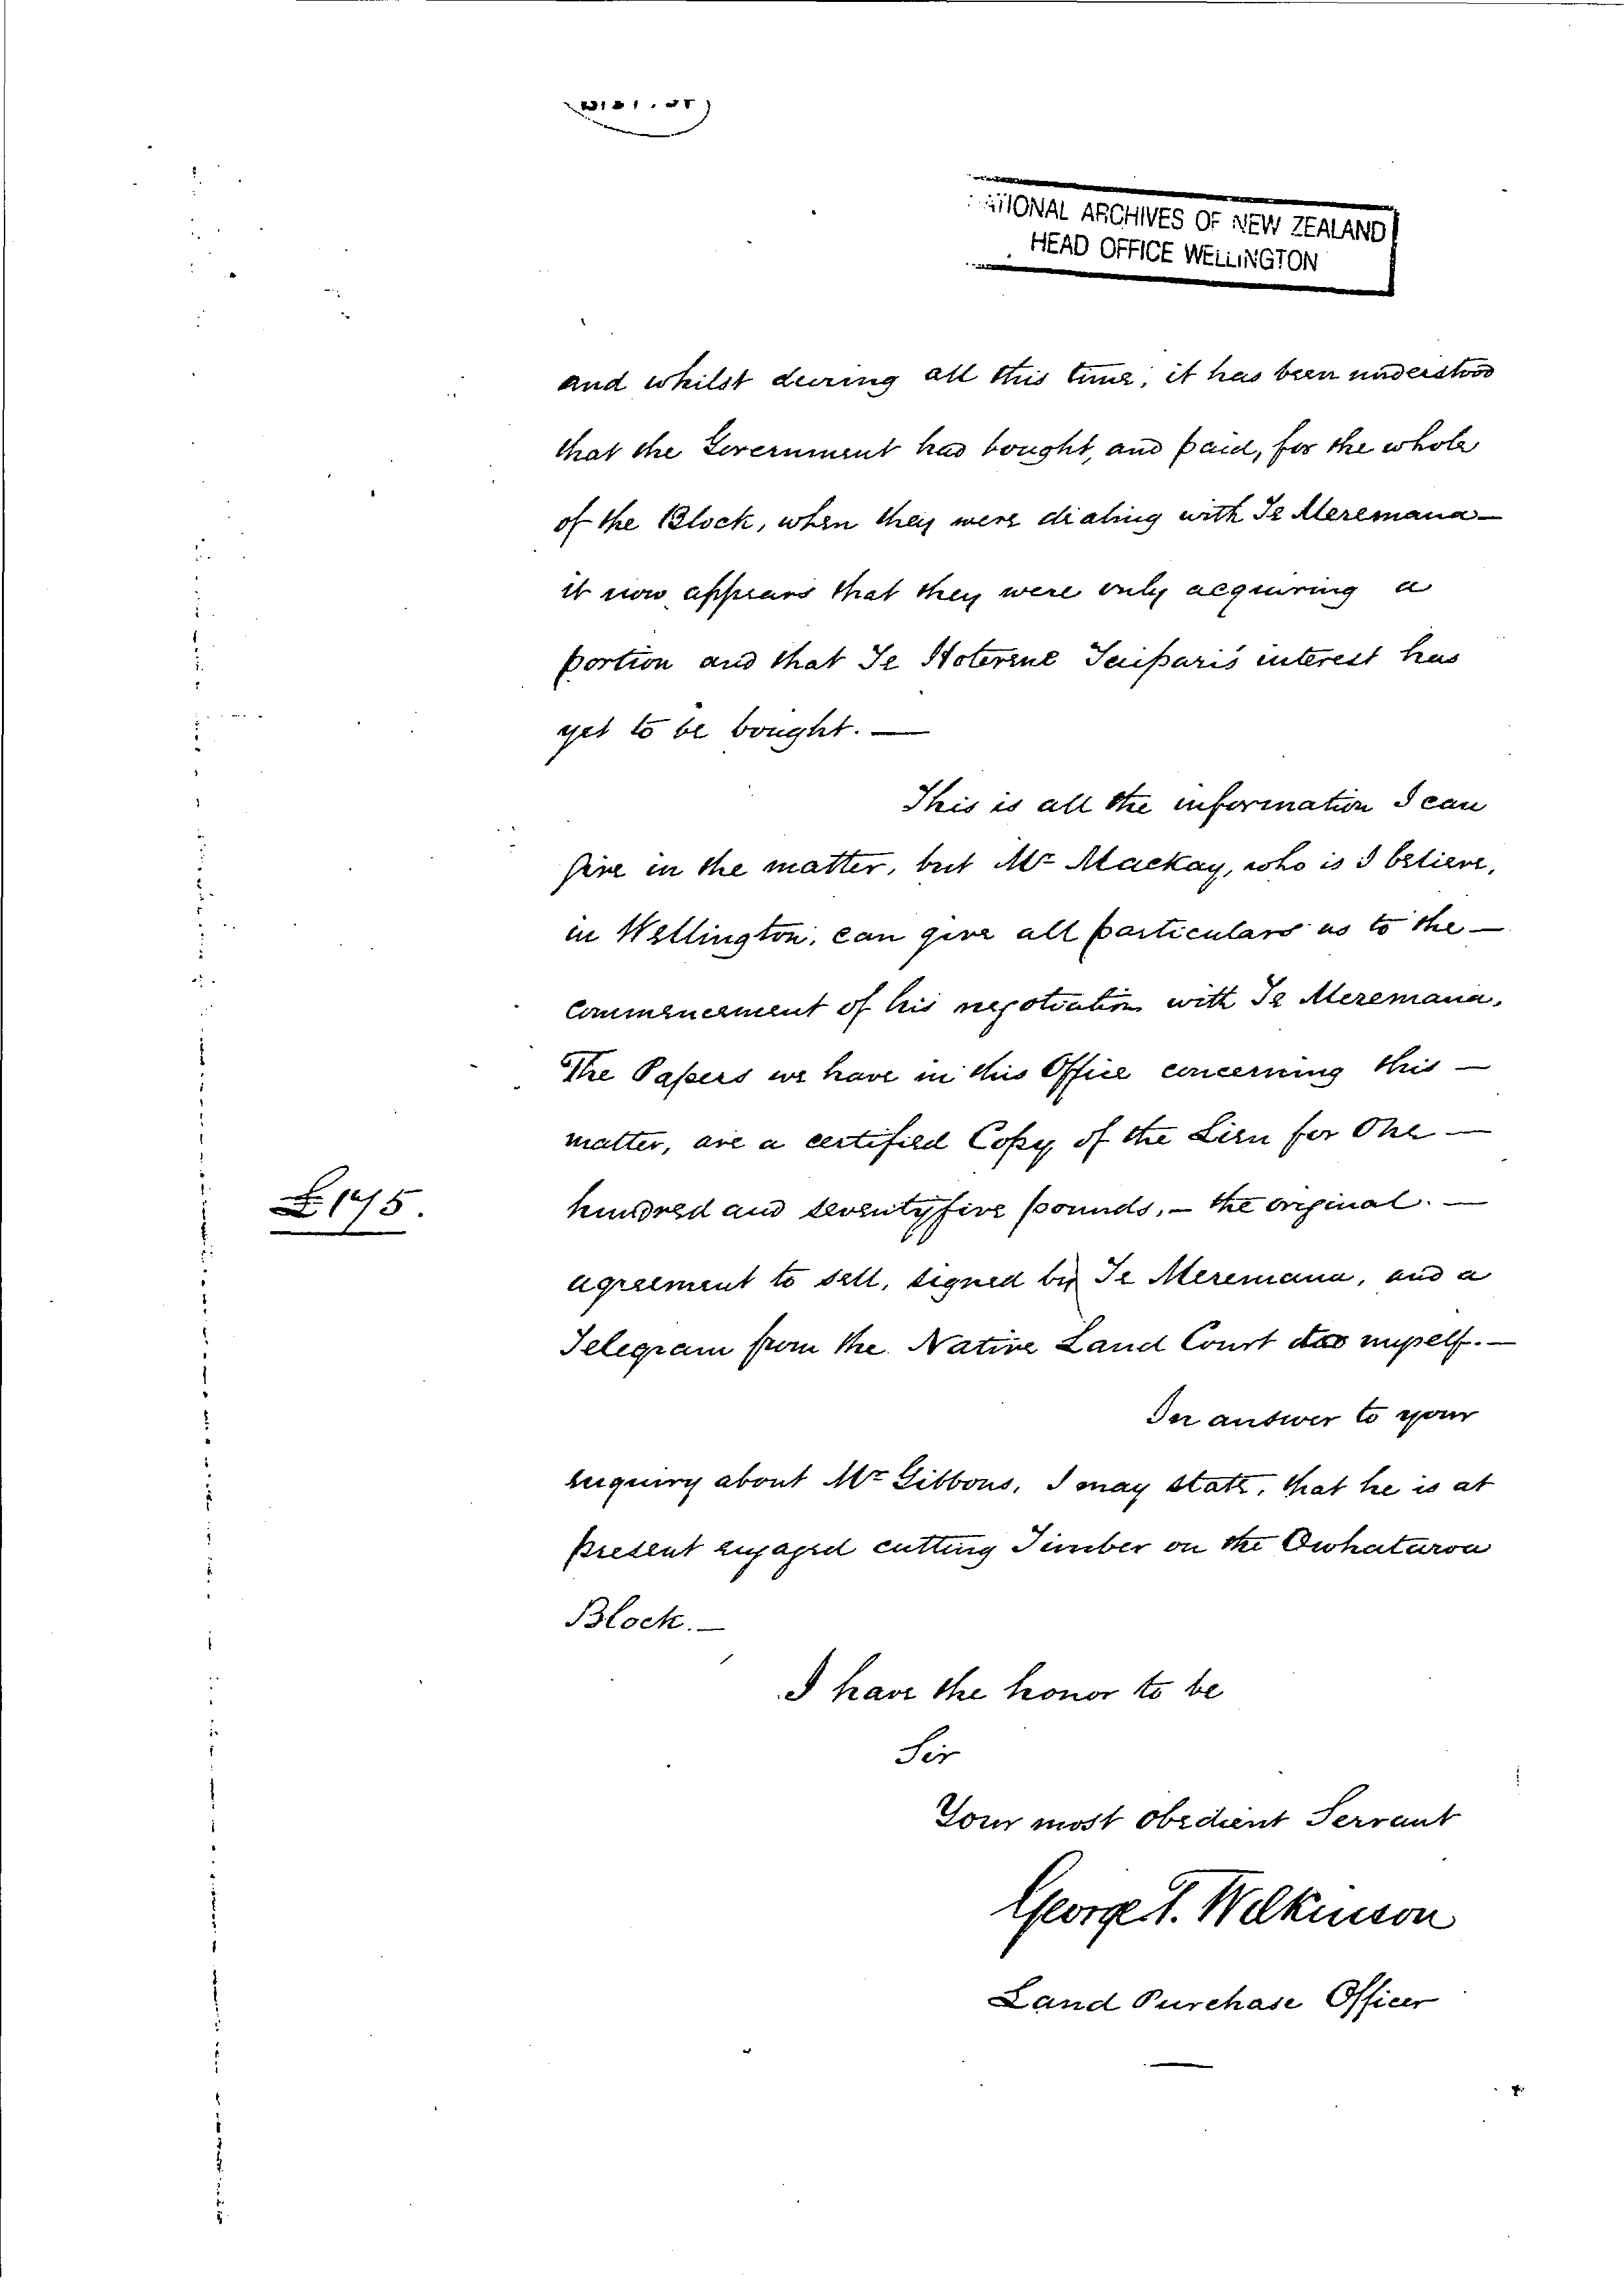 NATIONAL ARCHIVES OF NEW ZEALAND
HEAD OFFICE WELLINGTON
and whilst during all this time, it has been understood
that the Government had bought, and paid, for the whole
of the Block, when they were dealing with Te Meremana —
it now appears that they were only acquiring a
portion and that Te Hoterene Taipari's interest has
yet to be bought. —
This is all the information I can
give in the matter, but Mr Mackay, who is I believe,
in Wellington, can give all particulars as to the —
Commencement of his negotiation with Te Meremana.
The Papers we have in this Office concerning this —
matter, are a certified Copy of the Lien for One —
£175.
hundred and seventyfive pounds, — the original. —
agreement to sell, signed by Te Meremana, and a
Telegram from the Native Land Court to myself. —
In answer to your
enquiry about Mr Gibbons, I may state, that he is at
present engaged cutting Timber on the Owhataroa
Block. —
I have the honor to be
Sir
Your most obedient Servant
George T. Wilkinson
Land Purchase Officer